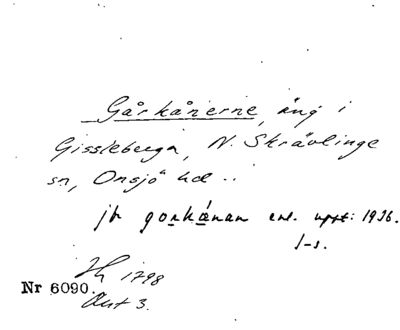 Gårkånerne, äng i
Gissleberga, N. Skrävlinge
sn, Onsjö hd ..
jfr gorkånan enl. uppt: 1936.
J-s.
Hh 1798
Nr 6090.
Akt 3.